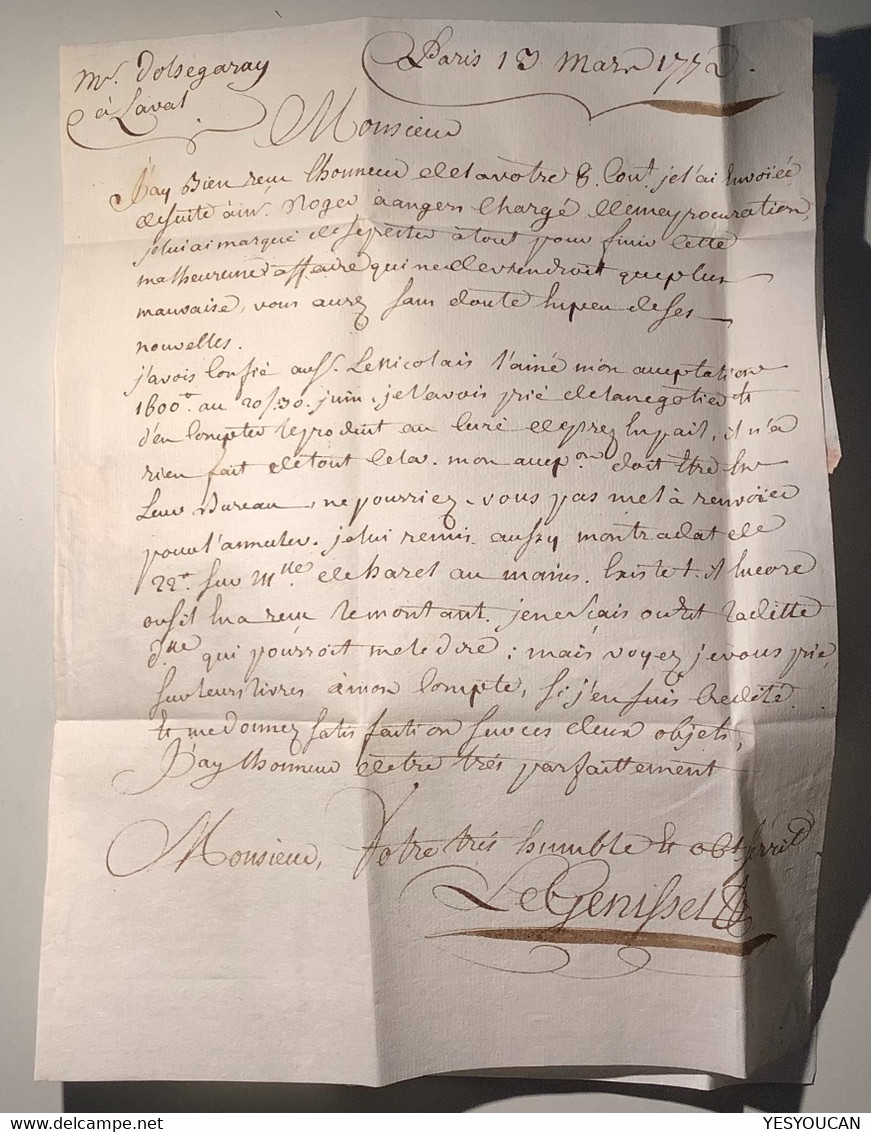 Mr. Dolsegaray
à Laval
Paris 13 Mars 1772.
Monsieur
J'ay Bien reçu lhonneur de la votre 8. Cont. je l'ai Envoiée
de suite à mr. Roger à angers Chargé de ma procuration,
je lui ai marqué de se preter à tout pour finir Cette
malheureuse affaire qui ne deviendroit que plus
mauvaise, vous aurez sans doute Eu peu de ses
nouvelles.
j'avois Confié aus. Le Nicolais l'ainé mon acceptation
1600tt au 20/30. juin, je l'avois prié de la negotier et
d'en Compter le produit au Curé de prez En pail, il n'a
rien fait de tout Cela. mon accep.on doit Etre En
Leur Bureau, ne pourriez-vous pas me la renvoïer
pour l'annuler. je lui remis aussy mon traitat de
22tt sur Mlle. de hazel au mains. Existe t-il Encore
ou s'il En a reçu le montant. je ne sçais où est laditte
dlle qui pourroit me le dire; mais voyez je vous prie
sur leurs livres à mon Compte, si j'en suis Credité
Et me donnez satisfaction sur ces deux objets,
J'ay lhonneur d'etre trés parfaittement
Monsieur, Votre trés humble et obt. servit.
LeGenissel
YESYOUCAN